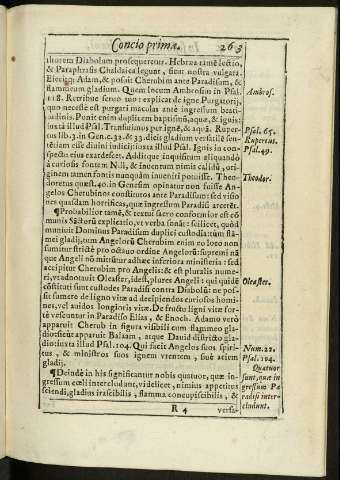 Concio primæ. 263
istorem Diabolum prosequeretur. Hebræa tamē lectio,
& Paraphrasis Chaldaica legunt, sicut nostra vulgata.
Eiecitq; Adam, & posuit Cherubim ante Paradisum, &
flammeum gladium. Quem locum Ambrosius in Psal.
118. Retribue seruo tuo: explicat de igne Purgatorij,
quo necesse est purgari maculas ante ingressum beati-
tudinis. Ponit enim duplicem baptismū, aquæ, & ignis:
iuxta illud Psal. Transiuimus per ignē, & aquā. Ruper-
tus lib. 3. in Gen. c. 32. & 33. dicit gladium versatilē sen-
tētiam esse diuini iudicij: iuxta illud Psal. Ignis in con-
spectu eius exardescet. Additque inquisitum aliquandò
à curiosis fontem Nili, & inuentum nimis calidū, ori-
ginem tamen fontis nunquàm inueniri potuisse. Theo-
doretus quest. 40. in Genesim opinatur non fuisse Ange-
los Cherubinos constitutos ante Paradisum: sed visio-
nes quasdam horrificas, quæ ingressum Paradisi arcerēt.
¶Probabilior tamē, & textui sacro conformior est cō
munis Sāctorū explicatio, vt verba sonāt: scilicet, quòd
muniuit Dominus Paradisum duplici custodia: tum flam-
mei gladij, tum Angelorū Cherubim enim eo loco non
sumitur strictè pro octauo ordine Angelorū: supremi nā
que Angeli nō mittūtur ad hæc inferiora ministeria: sed
accipitur Cherubim pro Angelis: & est pluralis nume-
ri, vt adnotauit Oleaster, idest, plures Angeli: qui quidē
cōstituti sunt custodes Paradisi contra Diabolū: ne pos-
sit sumere de ligno vitæ ad decipiendos curiosos homi-
nes, vel auidos longioris vitæ. De fructu ligni vitæ for-
tè vescuntur in Paradiso Elias, & Enoch. Adamo verò
apparuit Cherub in figura visibili cum flammeo gla-
dio: sicut apparuit Balaam, atque Dauid districto gla-
dio: iuxta illud Psal. 104. Qui facit Angelos suos spiri-
tus, & ministros suos ignem vrentem, siuè aciem
gladij.
¶Deindè in his significantur nobis quatuor, quæ in-
gressum cœli intercludunt, videlicet, nimius appetitus
sciendi, gladius irascibilis, flamma concupiscibilis, &
R 4 versa-
Ambros.
Psal. 65.
Rupertus.
Psal. 49.
Theodor.
Oleaster.
Num. 22.
Psal. 104.
Quatuor
sunt, quæ in
gressum Pa
radisi inter-
cludunt.